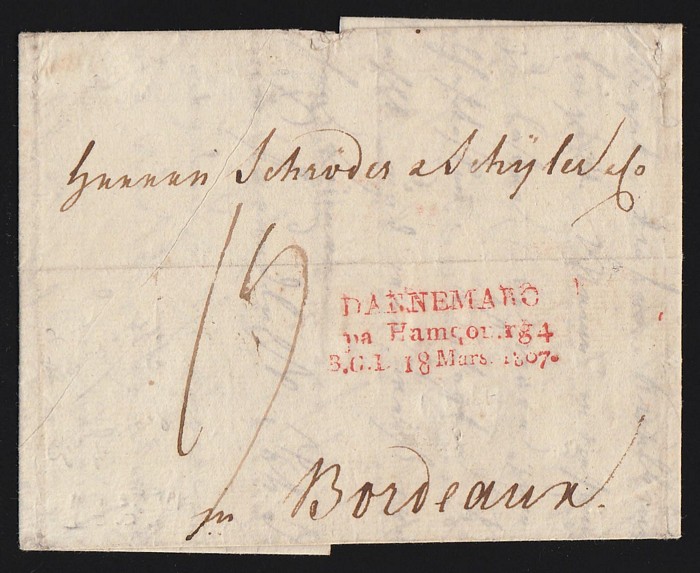 Herren Schröder & Schÿler & Co
15
DANNEMARC
pa Hambourg 4
B.G.D. 18 Mars. 1807.
zu Bordeaux.